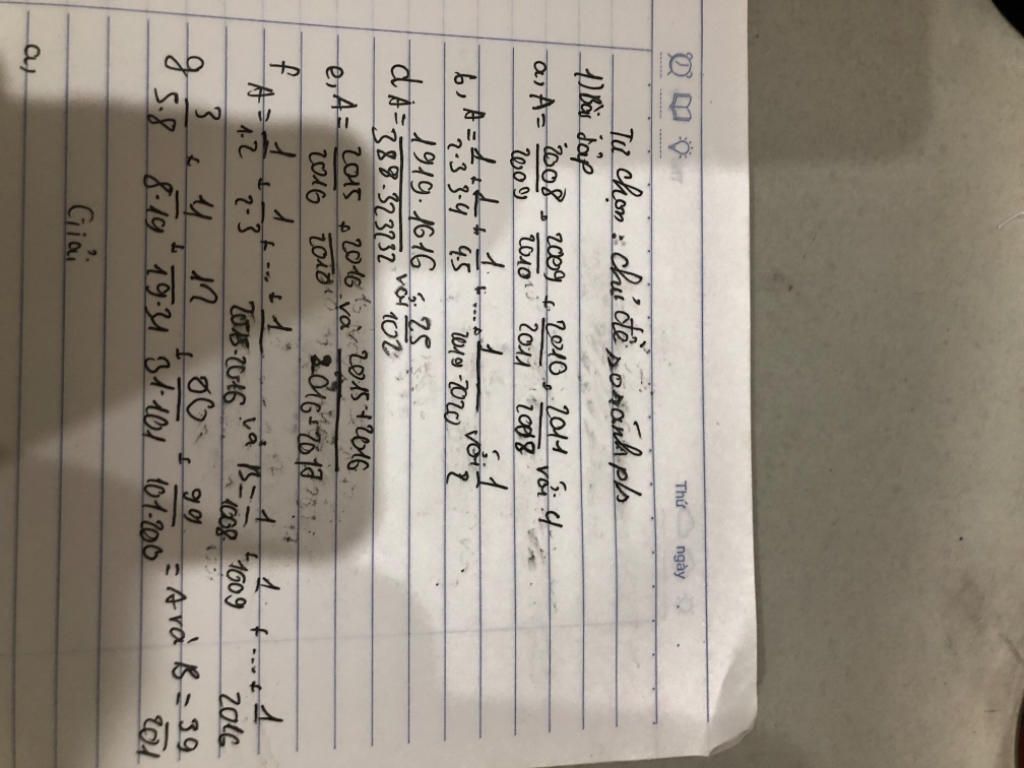 Thứ ngày
Tự chọn : chủ đề so sánh p/s
1) Bài tập
a, A = 2008/2009 + 2009/2010 + 2010/2011 + 2011/2008 với 4
b, A = 1/2·3 + 1/3·4 + 1/4·5 + ... + 1/2019·2020 với 1/2
d, A = 1919·1616/388·323232 với 25/102
e, A = 2015/2016 + 2016/2017 và 2015+2016/2016+2017
f
A = 1/1·2 + 1/2·3 + ... + 1/2015·2016 và B = 1/1008 + 1/1009 + ... + 1/2016
g 3/5·8 + 11/8·19 + 12/19·31 + 70/31·101 + 99/101·200 = A và B = 39/201
Giải
a,